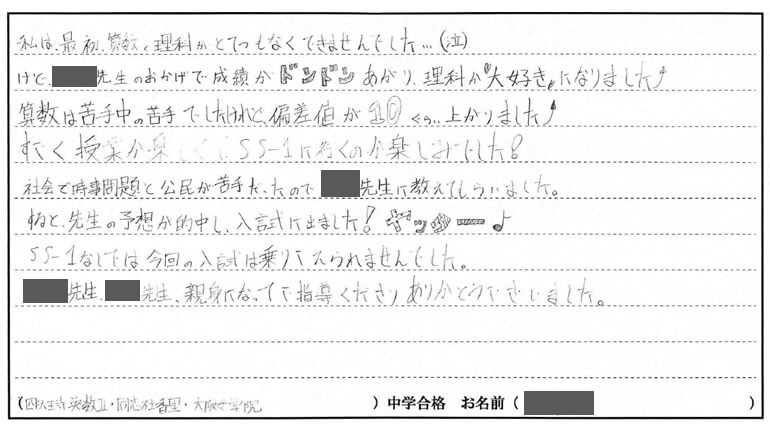 私は、最初、算数、理科がとてつもなくできませんでした…(泣)
けど、先生のおかげで成績がドンドンあがり、理科が"大好き"になりました♪
算数は苦手中の苦手でしたけれど、偏差値が10ぐらい上がりました♪
すごく授業が楽しくてSS-1に行くのが楽しみでした!
社会で時事問題と公民が苦手だったので先生に教えてもらいました。
すると、先生の予想が的中し、入試に出ました! ヤッター♪
SS-1なしでは今回の入試は乗りこえられませんでした。
先生、先生、親身になってご指導くださりありがとうございました。
(四天王寺英数Ⅱ・同志社香里・大阪女学院 )中学合格 お名前( )